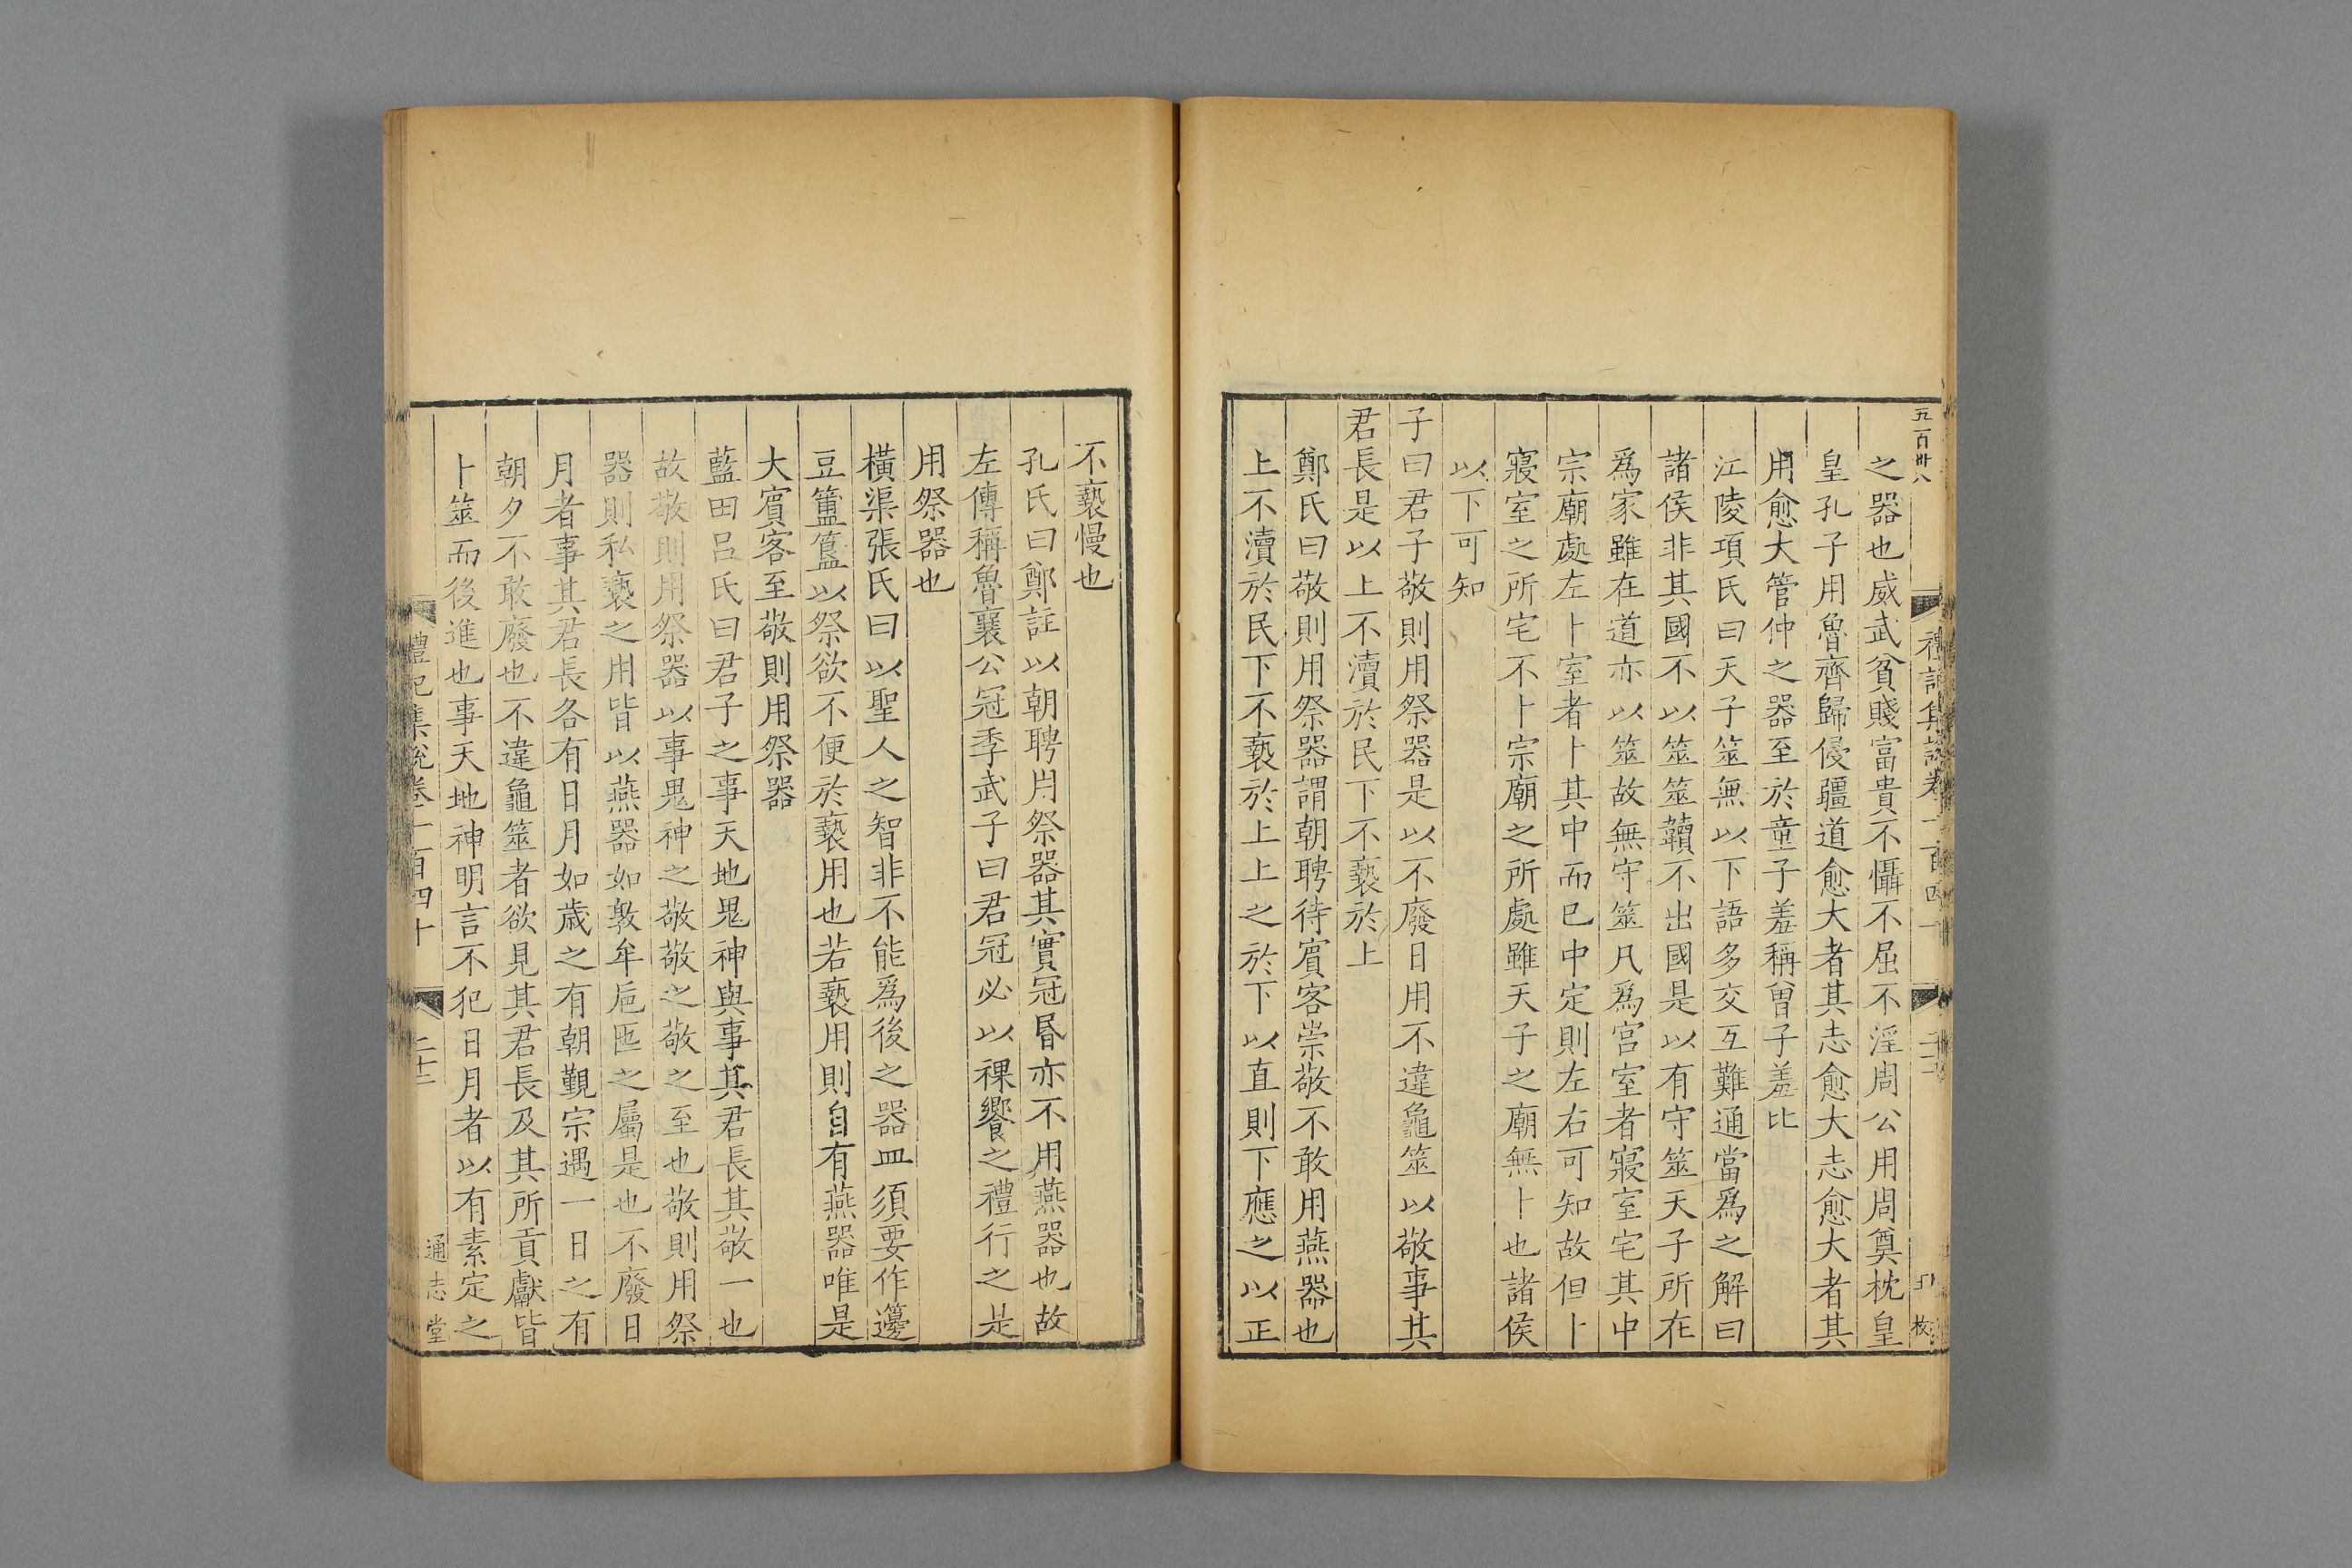 五百卅八
之器也威武貧賤富貴不懾不屈不淫周公用周奠枕皇
皇孔子用魯齊歸侵疆道愈大者其志愈大志愈大者其
用愈大管仲之器至於童子羞稱曾子羞比
江陵項氏曰天子筮無以下語多交互難通當爲之解曰
諸侯非其國不以筮筮韥不出國是以有守筮天子所在
爲家雖在道亦以筮故無守筮凡爲宫室者寢室宅其中
宗廟處左卜室者卜其中而已中定則左右可知故但卜
寢室之所宅不卜宗廟之所處雖天子之廟無卜也諸侯
以下可知
子曰君子敬則用祭器是以不廢日用不違龜筮以敬事其
君長是以上不瀆於民下不褻於上
鄭氏曰敬則用祭器謂朝聘待賓客崇敬不敢用燕器也
上不瀆於民下不褻於上上之於下以直則下應之以正
不褻慢也
孔氏曰鄭註以朝聘用祭器其實冠昬亦不用燕器也故
左傳稱魯襄公冠季武子曰君冠必以祼饗之禮行之是
用祭器也
橫渠張氏曰以聖人之智非不能爲後之器皿須要作籩
豆簠簋以祭欲不便於褻用也若褻用則自有燕器唯是
大賓客至敬則用祭器
藍田吕氏曰君子之事天地鬼神與事其君長其敬一也
故敬則用祭器以事鬼神之敬敬之敬之至也敬則用祭
器則私褻之用皆以燕器如敦牟巵匜之屬是也不廢日
月者事其君長各有日月如歳之有朝覲宗遇一日之有
朝夕不敢廢也不違龜筮者欲見其君長及其所貢獻皆
卜筮而後進也事天地神明言不犯日月者以有素定之
禮記集說卷一百四十
二十二
通志堂